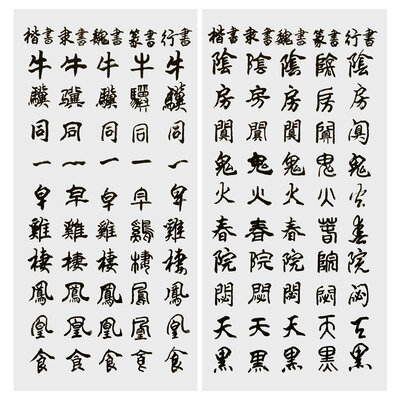 楷書 隶書 魏書 篆書 行書
牛 牛 牛 牛 牛
驥 驥 驥 驥 驥
同 同 同 同 同
一 一 一 一 一
皁 皁 皁 皁 皁
雞 雞 雞 雞 雞
棲 棲 棲 棲 棲
鳳 鳳 鳳 鳳 鳳
凰 凰 凰 凰 凰
食 食 食 食 食
楷書 隶書 魏書 篆書 行書
陰 陰 陰 陰 陰
房 房 房 房 房
闃 闃 闃 闃 闃
鬼 鬼 鬼 鬼 鬼
火 火 火 火 火
春 春 春 春 春
院 院 院 院 院
閟 閟 閟 閟 閟
天 天 天 天 天
黑 黑 黑 黑 黑